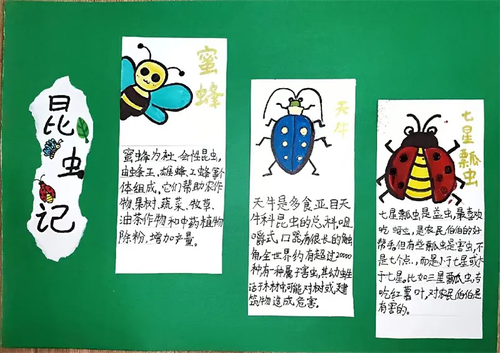 昆虫记
蜜蜂
蜜蜂为社会性昆虫,
由蜂王、雄蜂、工蜂等个
体组成,它们帮助农作
物、果树、蔬菜、牧草、
油茶作物和中药植物
除粉,增加产量。
天牛
天牛是多食亚目天
牛科昆虫的总称,咀
嚼式口器,有很长的触
角,全世界约有超过20000
种有一种属于害虫,其幼虫
活于木材中,可能对树或建
筑物造成危害。
七星瓢虫
七星瓢虫是益虫,最喜欢
吃蚜虫,是农民伯伯的好
帮手。但有些瓢虫是害虫,不
是七个点,而是小于七星或大
于七星。比如二十星瓢虫,专
吃红薯叶,对农民伯伯是
有害的。